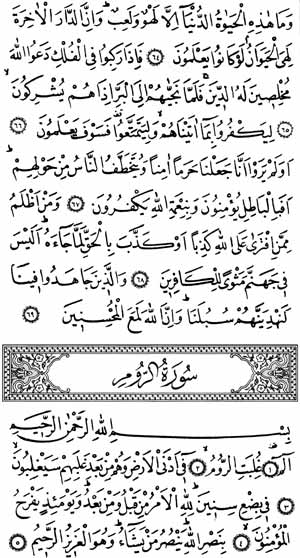 وَمَا هٰذِهِ الْحَيٰوةُ الدُّنْيَا اِلَّا لَهْوٌ وَلَعِبٌ وَاِنَّ الدَّارَ الْاٰخِرَةَ
لَهِىَ الْحَيَوَانُ لَوْ كَانُوا يَعْلَمُونَ ﴿٦٤﴾ فَاِذَا رَكِبُوا فِى الْفُلْكِ دَعَوُا اللّٰهَ
مُخْلِصِينَ لَهُ الدِّينَ فَلَمَّا نَجّٰيهُمْ اِلَى الْبَرِّ اِذَا هُمْ يُشْرِكُونَ
﴿٦٥﴾ لِيَكْفُرُوا بِمَا اٰتَيْنَاهُمْ وَلِيَتَمَتَّعُوا فَسَوْفَ يَعْلَمُونَ ﴿٦٦﴾
اَوَلَمْ يَرَوْا اَنَّا جَعَلْنَا حَرَمًا اٰمِنًا وَيُتَخَطَّفُ النَّاسُ مِنْ حَوْلِهِمْ
اَفَبِالْبَاطِلِ يُؤْمِنُونَ وَبِنِعْمَةِ اللّٰهِ يَكْفُرُونَ ﴿٦٧﴾ وَمَنْ اَظْلَمُ
مِمَّنِ افْتَرٰى عَلَى اللّٰهِ كَذِبًا اَوْ كَذَّبَ بِالْحَقِّ لَمَّا جَاءَهُ اَلَيْسَ
فِى جَهَنَّمَ مَثْوًى لِلْكَافِرِينَ ﴿٦٨﴾ وَالَّذِينَ جَاهَدُوا فِينَا
لَنَهْدِيَنَّهُمْ سُبُلَنَا وَاِنَّ اللّٰهَ لَمَعَ الْمُحْسِنِينَ ﴿٦٩﴾
سُورَةُ الرُّومِ
بِسْمِ اللّٰهِ الرَّحْمٰنِ الرَّحِيمِ
الٓمٓ ﴿١﴾ غُلِبَتِ الرُّومُ ﴿٢﴾ فِى اَدْنَى الْاَرْضِ وَهُمْ مِنْ بَعْدِ غَلَبِهِمْ سَيَغْلِبُونَ
﴿٣﴾ فِى بِضْعِ سِنِينَ لِلّٰهِ الْاَمْرُ مِنْ قَبْلُ وَمِنْ بَعْدُ وَيَوْمَئِذٍ يَفْرَحُ
الْمُؤْمِنُونَ ﴿٤﴾ بِنَصْرِ اللّٰهِ يَنْصُرُ مَنْ يَشَاءُ وَهُوَ الْعَزِيزُ الرَّحِيمُ ﴿٥﴾